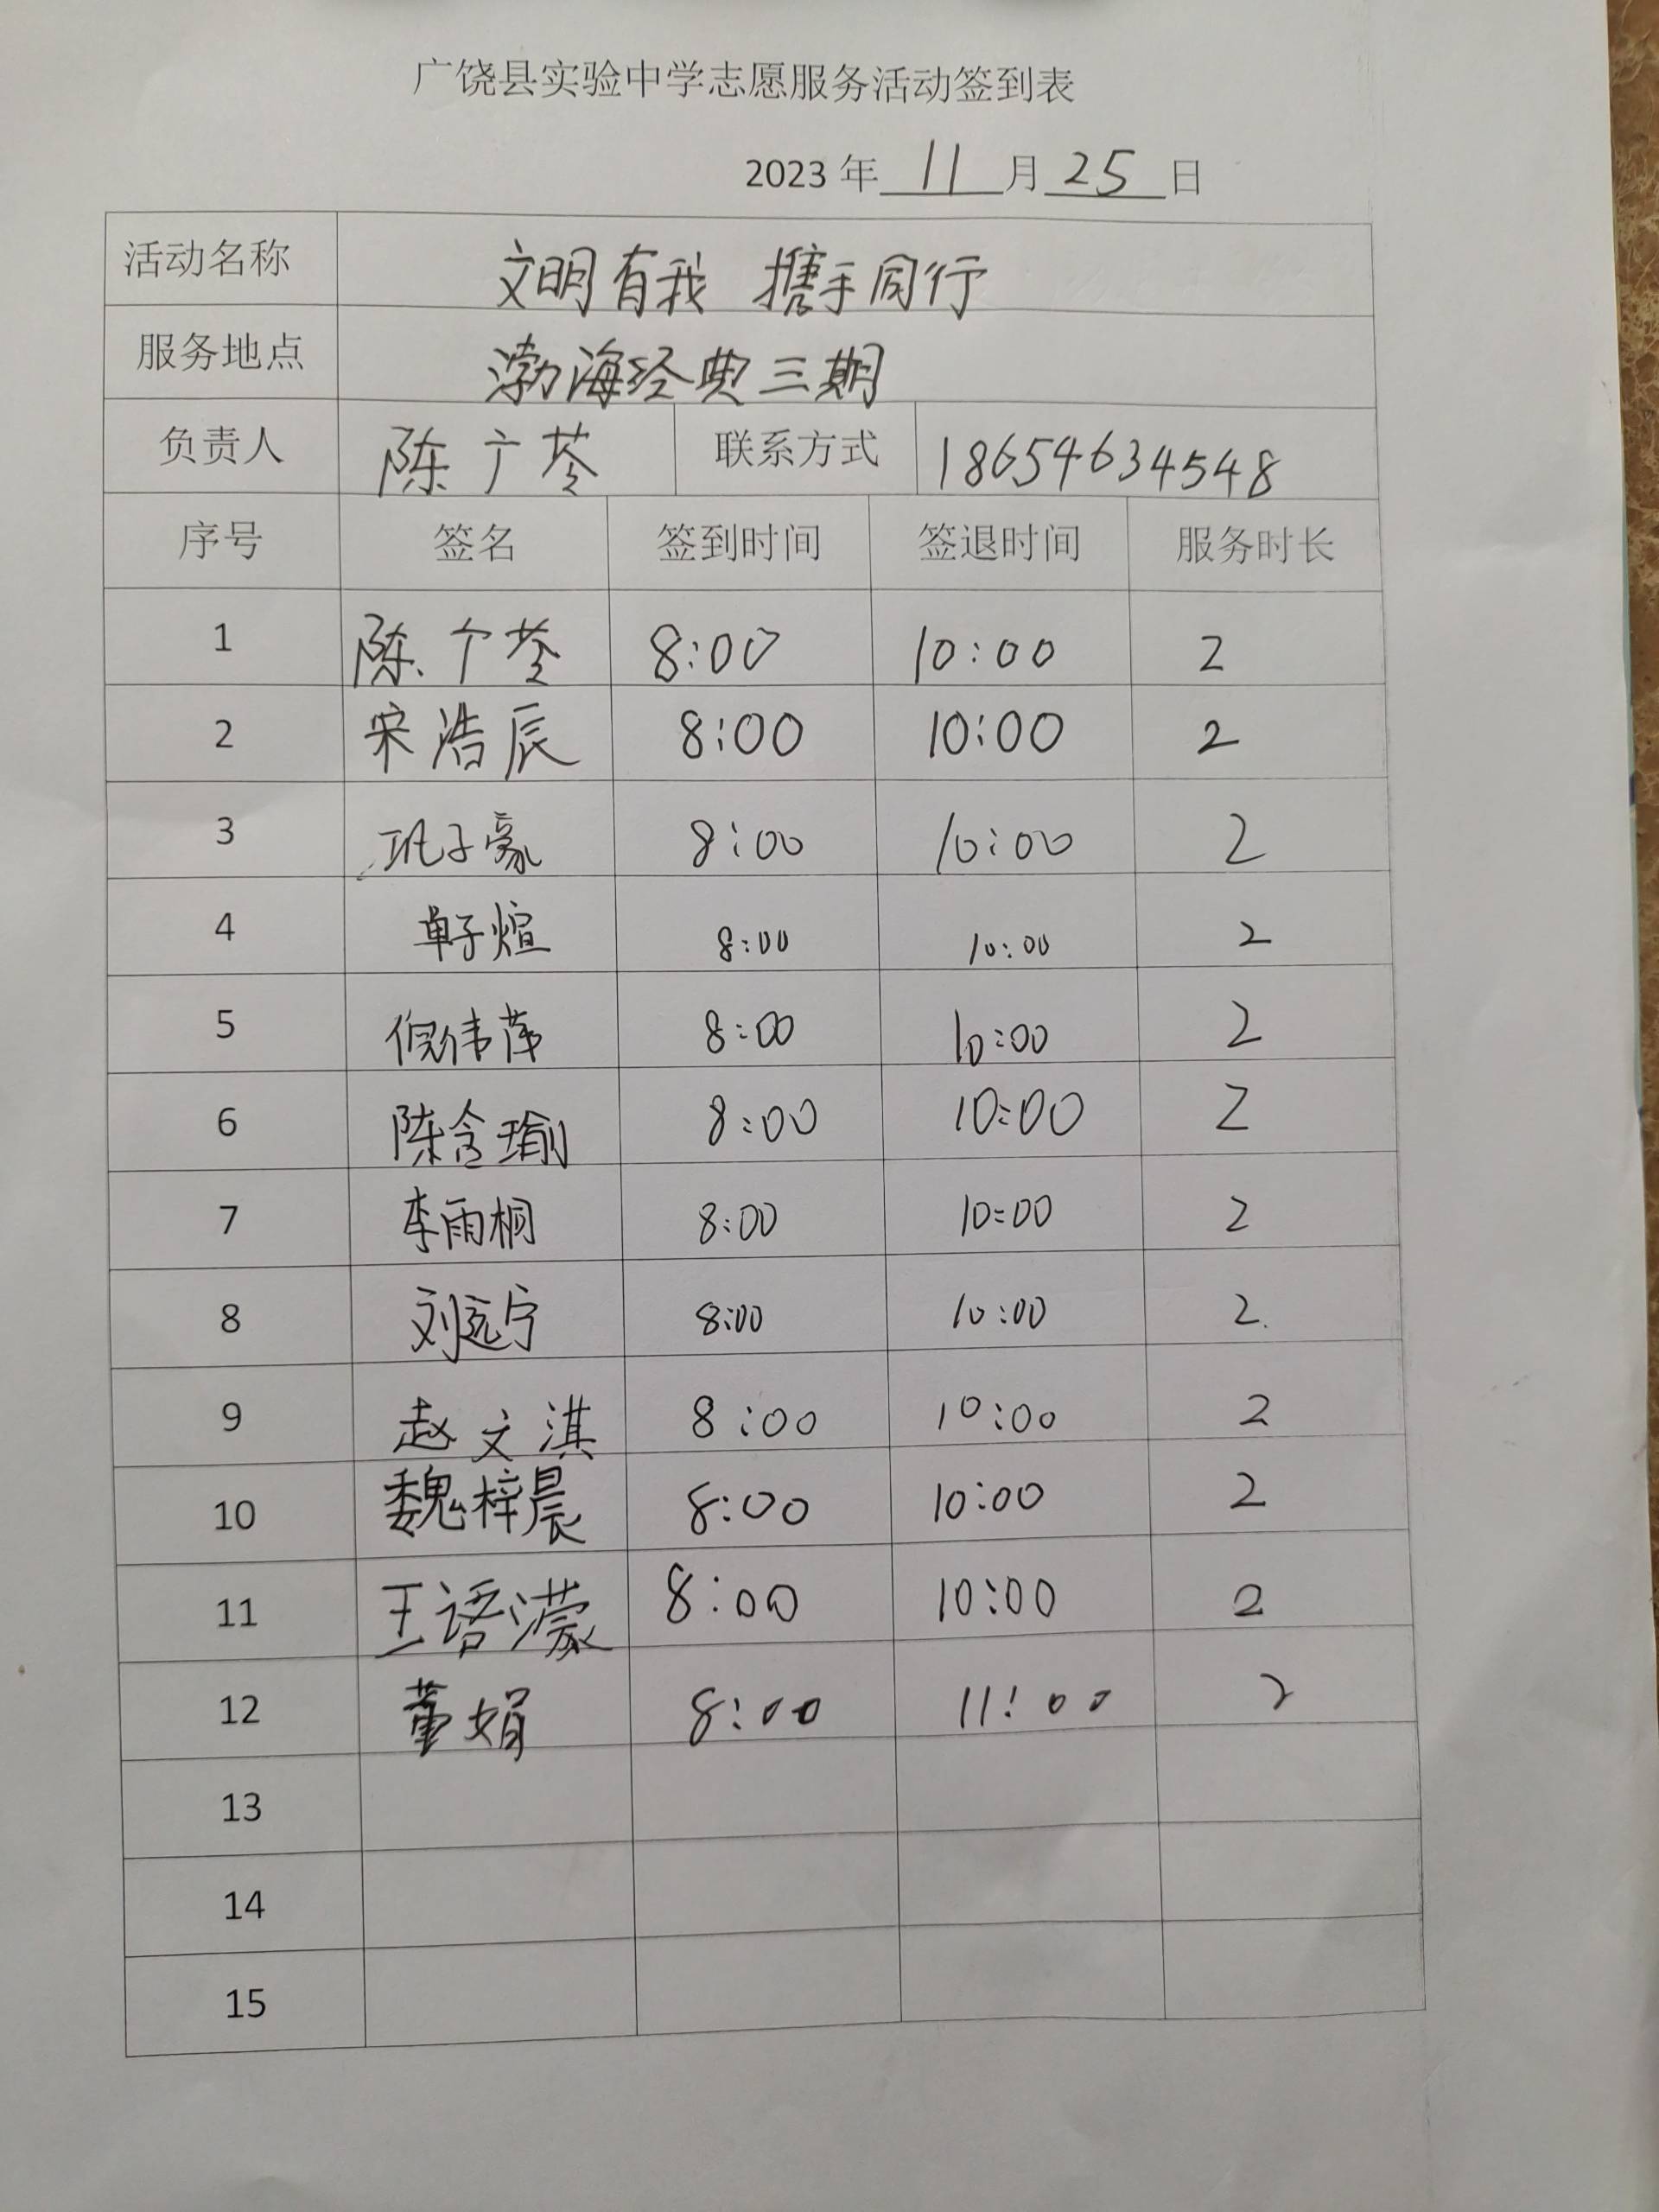 广饶县实验中学志愿服务活动签到表
2023 年 11 月 25 日
活动名称 文明有我 携手同行
服务地点 渤海经典三期
负责人 陈广苓 联系方式 18654634548
序号 签名 签到时间 签退时间 服务时长
1 陈个苓 8:00 10:00 2
2 宋浩辰 8:00 10:00 2
3 巩子豪 8:00 10:00 2
4 单子煊 8:00 10:00 2
5 倪伟萍 8:00 10:00 2
6 陈含瑜 8:00 10:00 2
7 李雨桐 8:00 10:00 2
8 刘远宁 8:00 10:00 2.
9 赵文淇 8:00 10:00 2
10 魏梓晨 8:00 10:00 2
11 王语濛 8:00 10:00 2
12 董娟 8:00 11:00 2
13
14
15